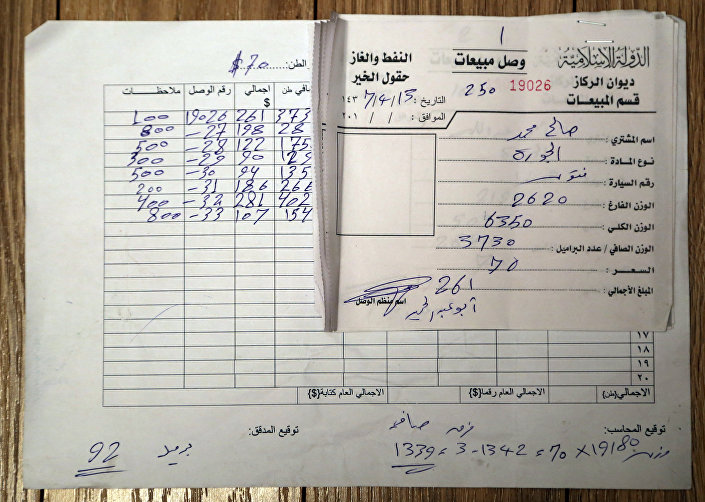 الدولة الإسلامية
ديوان الركاز
قسم المبيعات
1
وصل مبيعات
250
19026
النفط والغاز
حقول الخير
التاريخ : 7/4/15 ١٤٣
الموافق : / / ٢٠١
اسم المشتري : صالح محمد
نوع المادة :
رقم السيارة :
الوزن الفارغ : 2620
الوزن الكلي : 6350
الوزن الصافي / عدد البراميل : 3730
السعر : 70
المبلغ الأجمالي : 261
اسم منظم الوصل
الطن: $70
افي طن اجمالي $ رقم الوصل ملاحظات
373 261 19026 100
28 198 27- 800
175 122 28- 500
129 90 29- 300
135 94 30- 500
266 186 31- 200
402 281 32- 400
154 107 33- 800
١٧
١٨
١٩
٢٠
الاجمالي(طن) الاجمالي العام رقما{$} الاجمالي العام كتابة{$}
توقيع المحاسب: توقيع المدقق:
1339 = 3 - 1342 = 70 × 19180
92